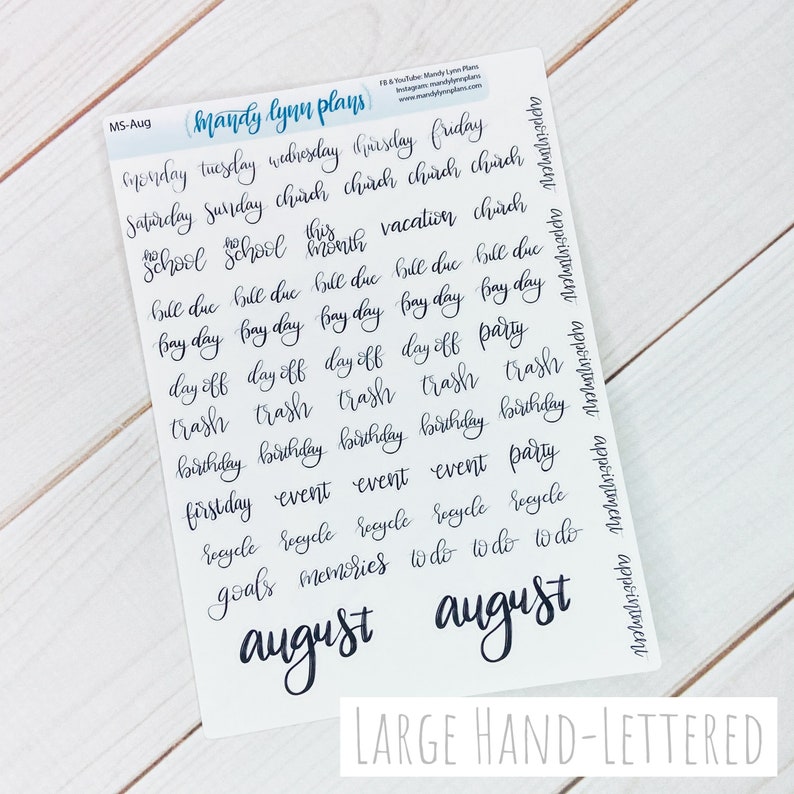 MS-Aug
mandy lynn plans
FB & YouTube: Mandy Lynn Plans
Instagram: mandylynnplans
www.mandylynnplans.com
monday tuesday wednesday thursday friday
saturday sunday church church church church
no school no school this month vacation church
bill due bill due bill due bill due bill due
pay day pay day pay day pay day pay day
day off day off day off day off party
trash trash trash trash trash
birthday birthday birthday birthday birthday
first day event event event party
recycle recycle recycle recycle recycle
goals memories to do to do to do
august august
appointment
appointment
appointment
appointment
appointment
LARGE HAND-LETTERED